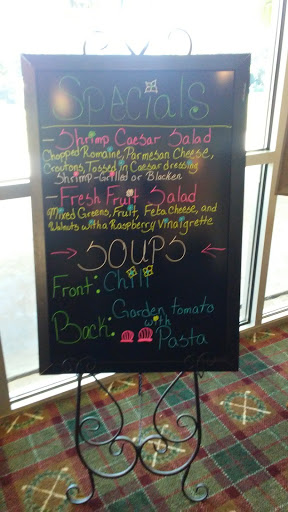 Specials
- Shrimp Caesar Salad
Chopped Romaine, Parmesan Cheese,
Croutons Tossed in Caesar dressing
Shrimp-Grilled or Blacken
- Fresh Fruit Salad
Mixed Greens, Fruit, Feta Cheese, and
Walnuts with a Raspberry Vinaigrette
→ SOUPS ←
Front: Chili
Back: Garden tomato
with
Pasta